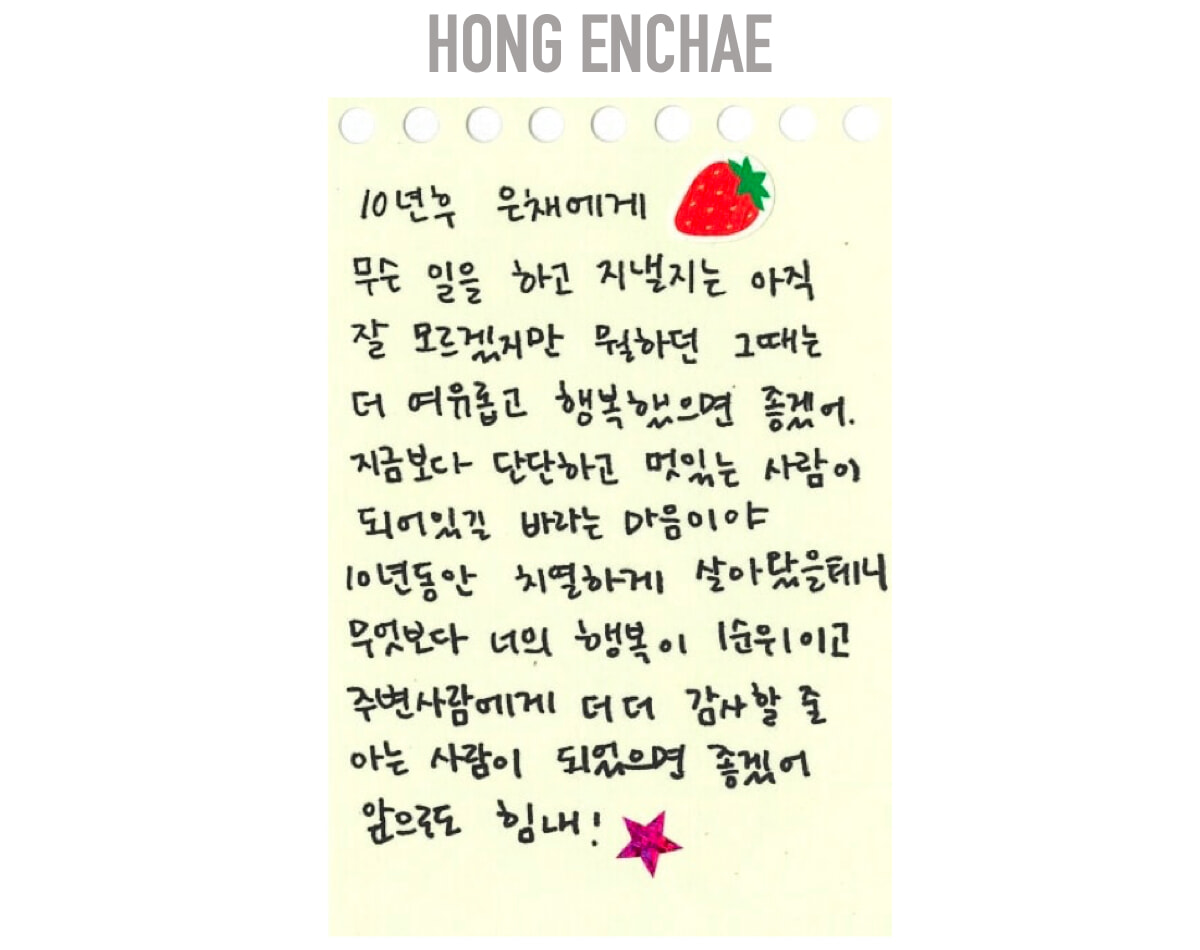 HONG ENCHAE
10년후 은채에게
무슨 일을 하고 지낼지는 아직
잘 모르겠지만 뭘하던 그때는
더 여유롭고 행복했으면 좋겠어.
지금보다 단단하고 멋있는 사람이
되어있길 바라는 마음이야
10년동안 치열하게 살아왔을테니
무엇보다 너의 행복이 1순위이고
주변사람에게 더더 감사할 줄
아는 사람이 되었으면 좋겠어
앞으로도 힘내!